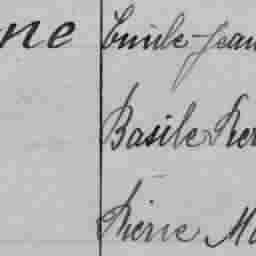 ne Emile-Jean
Basile Pier
Pierre Ma